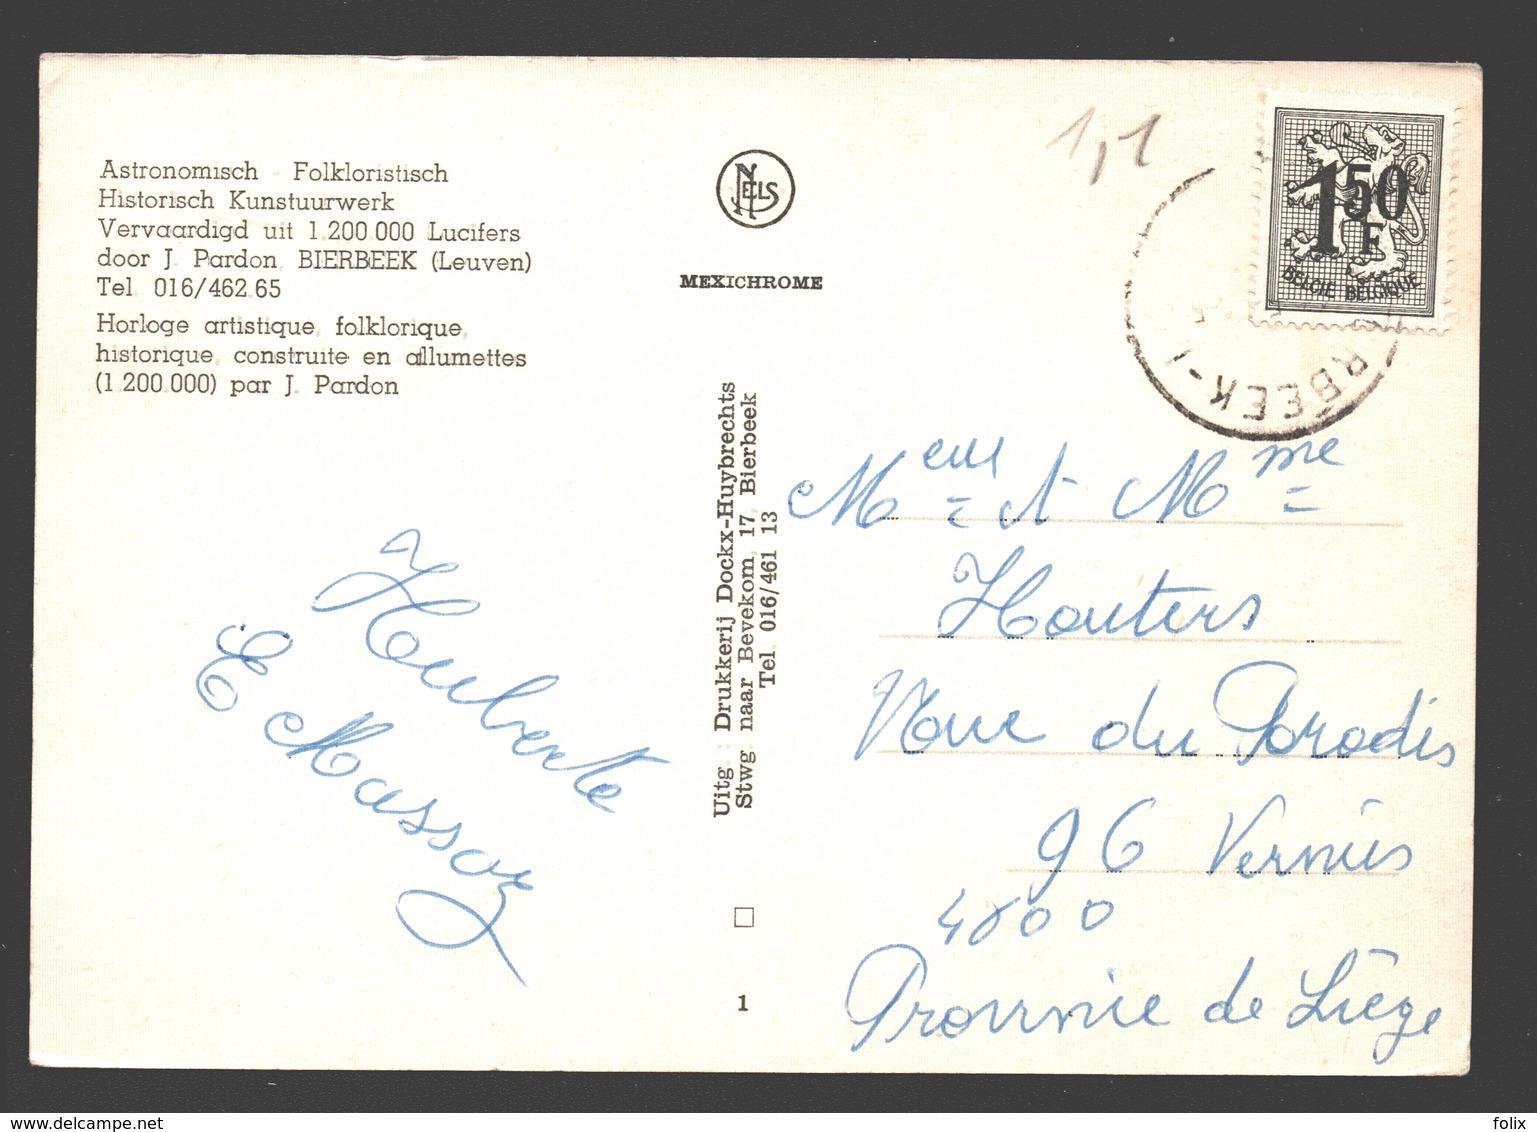 Astronomisch Folkloristisch
Historisch Kunstuurwerk
Vervaardigd uit 1.200.000 Lucifers
door J. Pardon, BIERBEEK (Leuven)
Tel. 016/462.65
Horloge artistique, folklorique,
historique, construite en allumettes
(1.200.000) par J. Pardon
Houberte
E Massoz
NELS
MEXICHROME
Uitg. : Drukkerij Dockx-Huybrechts
Stwg. naar Bevekom, 17, Bierbeek
Tel. 016/461 13
1
1,1
1F50
BELGIE BELGIQUE
RBEEK-1
Meur et Mme
Houters
Rue du Paradis
96 Verviers
4800
Province de Liège
delcampe.net
folix